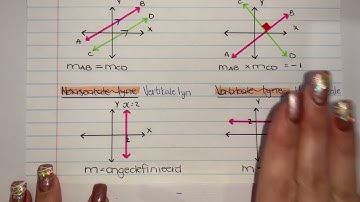 Y B D X A C
Y C B X A D
mAB = mCD
mAB × mCD = -1
Horisontale lyne Vertikale lyn
Vertikale lyne
Y x=2 X 2
Y 2
m = ongedefinieerd
m